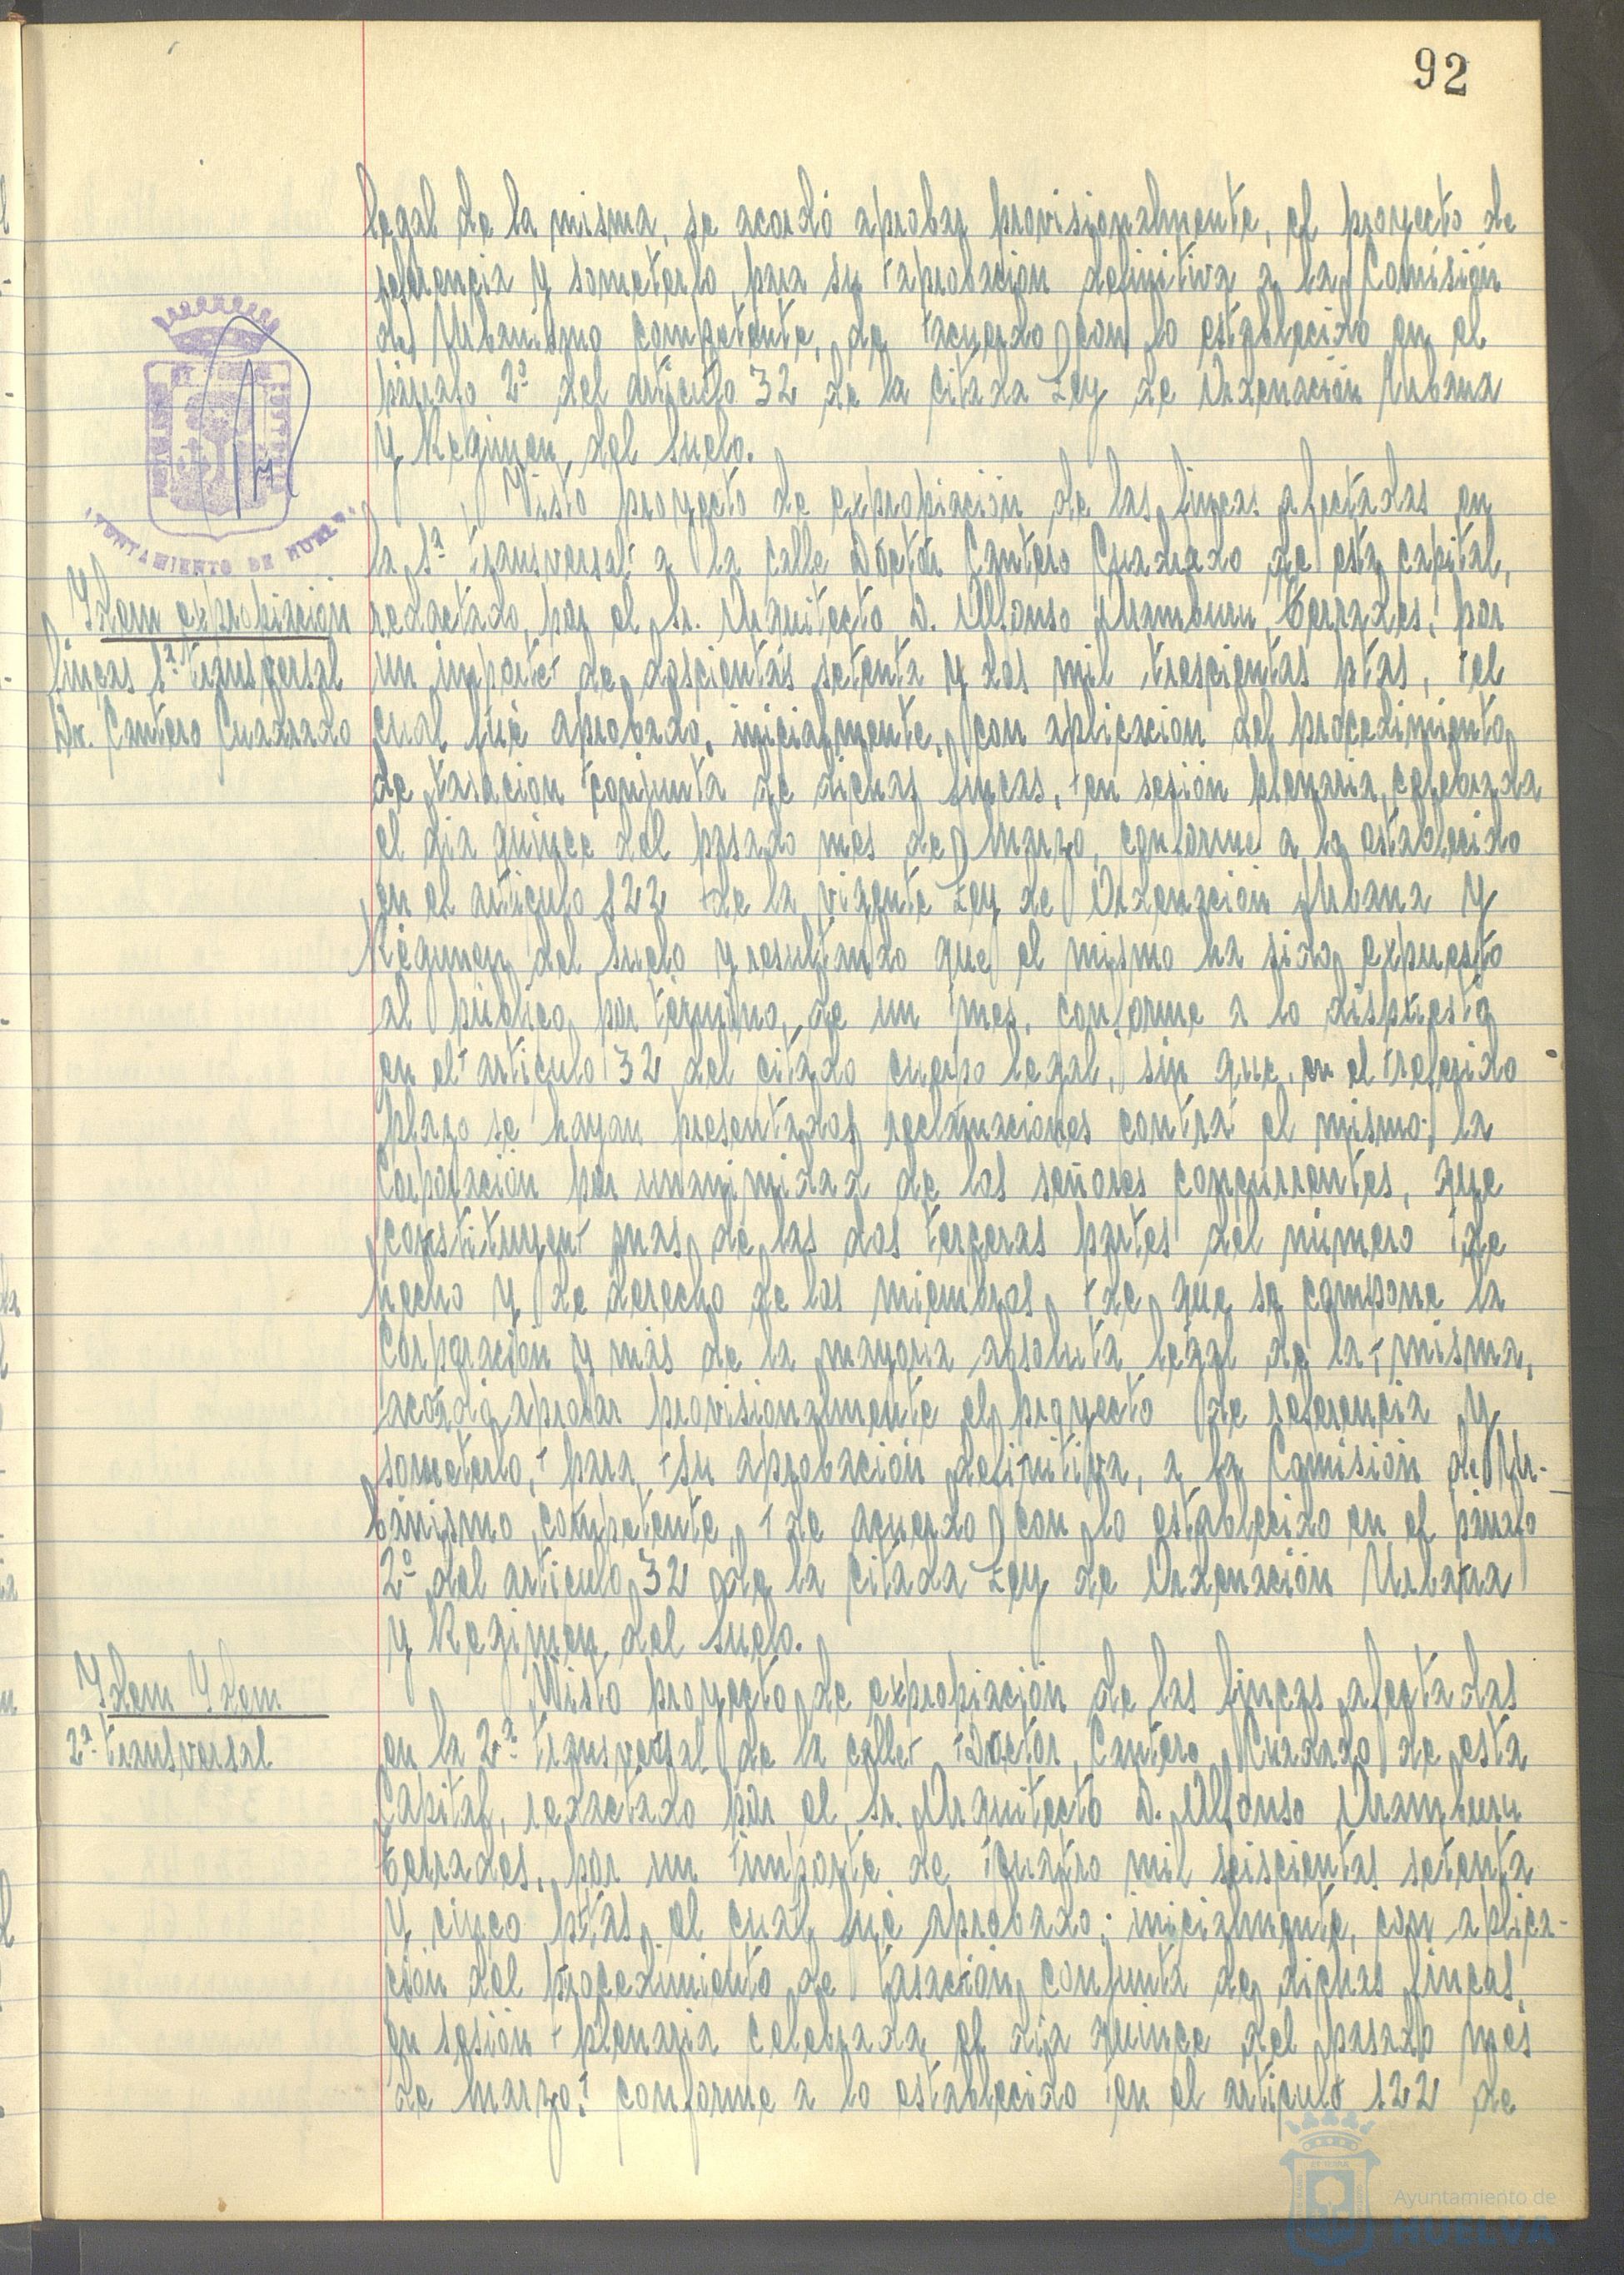 92
legal de la misma, se acordó aprobar provisionalmente, el proyecto de
referencia y someterlo, para su aprobación definitiva a la Comisión
de Urbanismo competente, de acuerdo con lo establecido en el
párrafo 2º del artículo 32 de la citada Ley de Ordenación Urbana
y Régimen del Suelo.
AYUNTAMIENTO DE HUELVA
Idem expropiación
fincas 1ª transversal
Dr. Cantero Cuadrado
Visto proyecto de expropiación de las fincas afectadas en
la 1ª transversal a la calle Doctor Cantero Cuadrado de esta capital,
redactado, por el Sr. Arquitecto D. Alfonso Aramburu Terrades, por
un importe de doscientas setenta y dos mil trescientas ptas, el
cual fué aprobado, inicialmente, con aplicación del procedimiento
de tasación conjunta de dichas fincas, en sesión plenaria, celebrada
el día quince del pasado mes de Marzo, conforme a lo establecido
en el artículo 122 de la vigente Ley de Ordenación Urbana y
Régimen del Suelo y resultando que el mismo ha sido expuesto
al público, por término, de un mes, conforme a lo dispuesto
en el artículo 32 del citado cuerpo legal, sin que, en el referido
plazo se hayan presentados reclamaciones contra el mismo; la
Corporación por unanimidad de los señores concurrentes, que
constituyen mas de las dos terceras partes del número de
hecho y de derecho de los miembros, de que se compone la
Corporación y más de la mayoría absoluta legal de la misma,
acordó aprobar provisionalmente el proyecto de referencia y
someterlo, para su aprobación definitiva, a la Comisión de Ur-
banismo, competente, de acuerdo con lo establecido en el párrafo
2º del artículo 32 de la citada Ley de Ordenación Urbana
y Régimen del Suelo.
Idem Idem
2ª transversal
Visto proyecto de expropiación de las fincas afectadas
en la 2ª transversal de la calle Doctor Cantero Cuadrado de esta
Capital, redactado por el Sr. Arquitecto D. Alfonso Aramburu
Terrades, por un importe de cuatro mil seiscientas setenta
y cinco ptas, el cual fué aprobado, inicialmente, con aplica-
ción del procedimiento de tasación conjunta de dichas fincas,
en sesión plenaria celebrada el día quince del pasado mes
de Marzo, conforme a lo establecido en el artículo 122 de
Ayuntamiento de
HUELVA